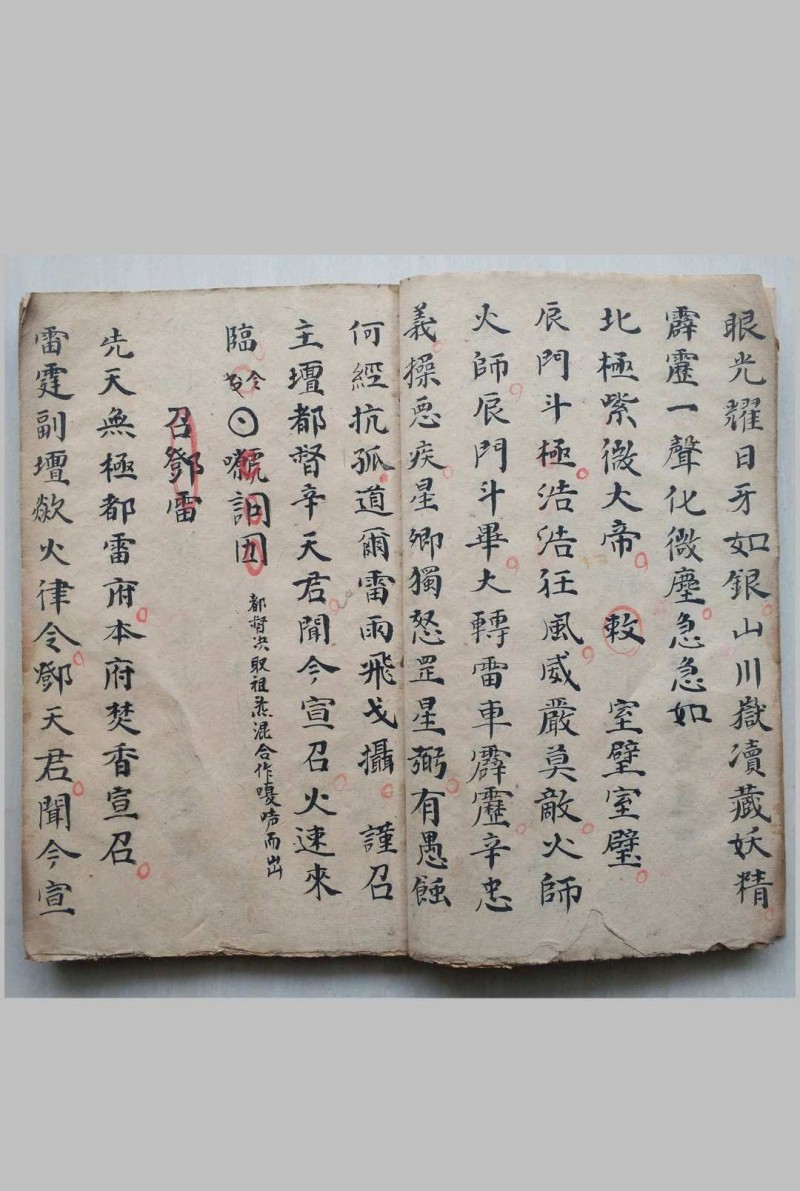 眼光耀日牙如銀山川嶽凟藏妖精
霹靂一聲化微塵急急如
北極紫微大帝 敕 室壁室璧
辰門斗極浩浩狂風威嚴莫敵火師
火師辰門斗畢大轉雷車霹靂辛忠
義操惡疾星卿獨怒罡星弼有愚蝕
何經抗孤道爾雷雨飛戈攝 謹召
主壇都督辛天君聞今宣召火速來
臨 號 囚
都督决取祖炁混合作嗄 而出
召鄧雷
先天無極都雷府本府焚香宣召
雷霆副壇歘火律令鄧天君聞今宣